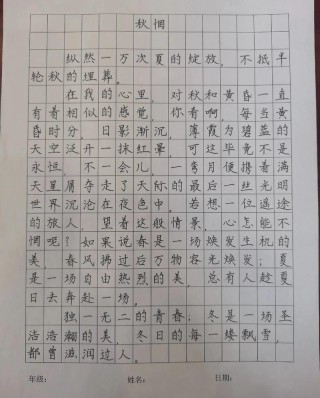 秋惘
纵然一万次夏的绽放，不抵半
轮秋的埋葬。
在我的心里，对秋和黄昏一直
有着相似的感觉，你看啊，每当黄
昏时分，日影渐沉，薄霞为碧蓝的
天空泛开一抹红晕，可这毕竟不是
永恒。不一会儿，一弯月便携着满
天星屑夺走了天际的最后一丝光明
世界沉沦在夜色中。若想一位遥途
的旅人，望着这般情景，心怎能不
惘呢？如果说春是一场焕发生机的
美，春风拂过后万物容光焕发；夏
是一场自由热烈的美，总有人趁夏
日去奔赴一场。
独一无二的青春；冬是一场圣
浩浩潮的美，冬日的每一缕飘雪，
都曾滋润过人。
年级：
姓名：
日期：